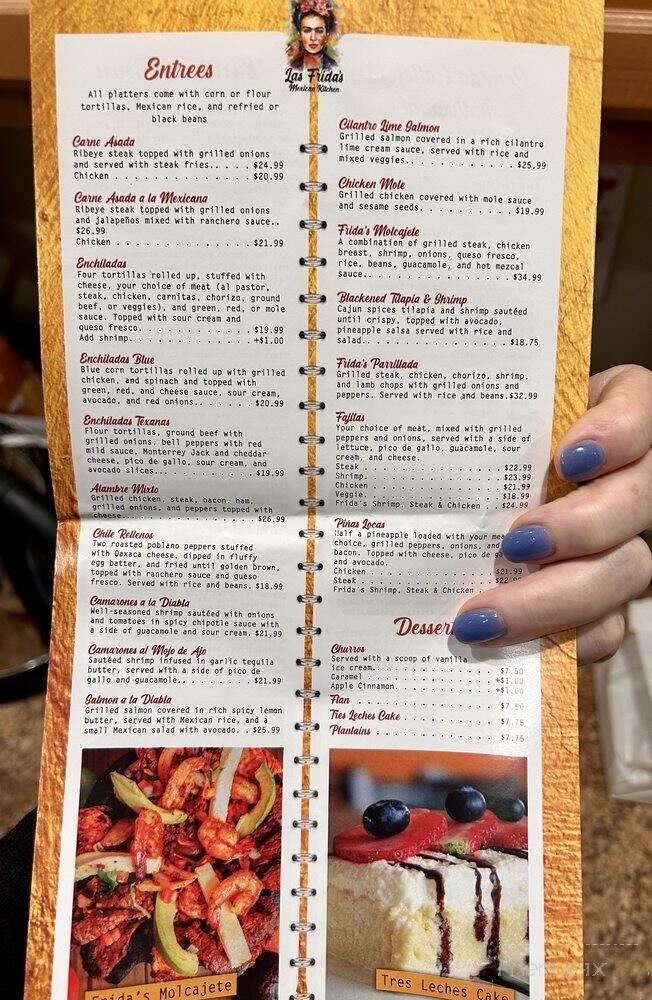 Las Frida's
Mexican Kitchen
Entrees
All platters come with corn or flour
tortillas, Mexican rice, and refried or
black beans
Carne Asada
Ribeye steak topped with grilled onions
and served with steak fries.. . . . .$24.99
Chicken . . . . . . . . . . . . . . .$20.99
Carne Asada a la Mexicana
Ribeye steak topped with grilled onions
and jalapeños mixed with ranchero sauce..
$26.99
Chicken . . . . . . . . . . . . . . .$21.99
Enchiladas
Four tortillas rolled up, stuffed with
cheese, your choice of meat (al pastor,
steak, chicken, carnitas, chorizo, ground
beef, or veggies), and green, red, or mole
sauce. Topped with sour cream and
queso fresco. . . . . . . . . . . . .$19.99
Add shrimp. . . . . . . . . . . . . .+$1.00
Enchiladas Blue
Blue corn tortillas rolled up with grilled
chicken, and spinach and topped with
green, red, and cheese sauce, sour cream,
avocado, and red onions.. . . . . . .$20.99
Enchiladas Texanas
Flour tortillas, ground beef with
grilled onions, bell peppers with red
mild sauce, Monterrey Jack and cheddar
cheese, pico de gallo, sour cream, and
avocado slices.. . . . . . . . . . . .$19.99
Alambre Mixto
Grilled chicken, steak, bacon, ham,
grilled onions, and peppers topped with
cheese. . . . . . . . . . . . . . . .$26.99
Chile Rellenos
Two roasted poblano peppers stuffed
with Oaxaca cheese, dipped in fluffy
egg batter, and fried until golden brown,
topped with ranchero sauce and queso
fresco. Served with rice and beans. $18.99
Camarones a la Diabla
Well-seasoned shrimp sautéed with onions
and tomatoes in spicy chipotle sauce with
a side of guacamole and sour cream. $21.99
Camarones al Mojo de Ajo
Sautéed shrimp infused in garlic tequila
butter, served with a side of pico de
gallo and guacamole.. . . . . . . . .$21.99
Salmon a la Diabla
Grilled salmon covered in rich spicy lemon
butter, served with Mexican rice, and a
small Mexican salad with avocado. . $25.99
Frida's Molcajete
Cilantro Lime Salmon
Grilled salmon covered in a rich cilantro
lime cream sauce, served with rice and
mixed veggies.. . . . . . . . . . . .$25.99
Chicken Mole
Grilled chicken covered with mole sauce
and sesame seeds. . . . . . . . . . .$19.99
Frida's Molcajete
A combination of grilled steak, chicken
breast, shrimp, onions, queso fresco,
rice, beans, guacamole, and hot mezcal
sauce.. . . . . . . . . . . . . . . .$34.99
Blackened Tilapia & Shrimp
Cajun spices tilapia and shrimp sautéed
until crispy, topped with avocado,
pineapple salsa served with rice and
salad.. . . . . . . . . . . . . . . .$18.75
Frida's Parrillada
Grilled steak, chicken, chorizo, shrimp,
and lamb chops with grilled onions and
peppers. Served with rice and beans.$32.99
Fajitas
Your choice of meat, mixed with grilled
peppers and onions, served with a side of
lettuce, pico de gallo, guacamole, sour
cream, and cheese.
Steak . . . . . . . . . . . . . . . .$22.99
Shrimp. . . . . . . . . . . . . . . .$23.99
Chicken . . . . . . . . . . . . . . .$21.99
Veggie. . . . . . . . . . . . . . . .$18.99
Frida's Shrimp, Steak & Chicken . . .$24.99
Piñas Locas
Half a pineapple loaded with your
choice, grilled peppers, onions, and
bacon. Topped with cheese, pico de
and avocado.
Chicken . . . . . . . . . . . . . . .$21.99
Steak . . . . . . . . . . . . . . . .
Frida's Shrimp, Steak & Chicken . . .
Churros
Served with a scoop of vanilla
ice cream.. . . . . . . . . . . . . .$7.50
Caramel . . . . . . . . . . . . . . .+$1.00
Apple Cinnamon. . . . . . . . . . . .+$1.00
Flan . . . . . . . . . . . . . . . .$7.50
Tres Leches Cake . . . . . . . . . .$7.75
Plantains . . . . . . . . . . . . . .$7.75
Tres Leches Cake